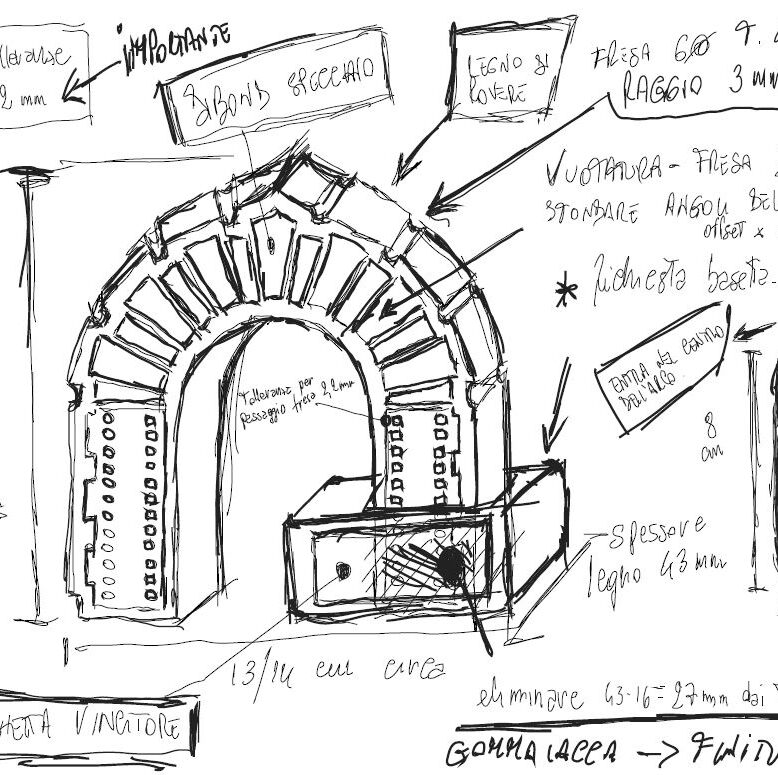 IMPORTANTE
2 mm
DIBOND SPECCHIO
LEGNO DI
ROVERE
FRESA 6Ø
RAGGIO 3 mm
VUOTATURA - FRESA
STONDARE ANGOLI DEL
offset x
* Richiesta basetta
ENTRA NEL CENTRO
DELL'ARCO
8
cm
Tolleranse per
passaggio fresa 2,2 mm
- SPESSORE
legno 43 mm
13/14 cm circa
HETTA VINCITORE
eliminare 43-16= 27 mm dai
GOMMALACCA -> FINITU